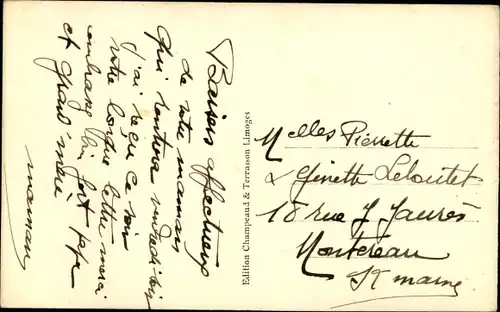 Baisers affectueux
de votre maman
qui rentrera vendredi soir
j'ai reçu ce soir
votre longue lettre merci
embrasse bien fort papa
et grand'mère
maman
Edition Champeaud & Terrasson Limoges
Melles Pierrette
& Ginette Leloutet
18 rue J Jaurès
Montereau
S et marne